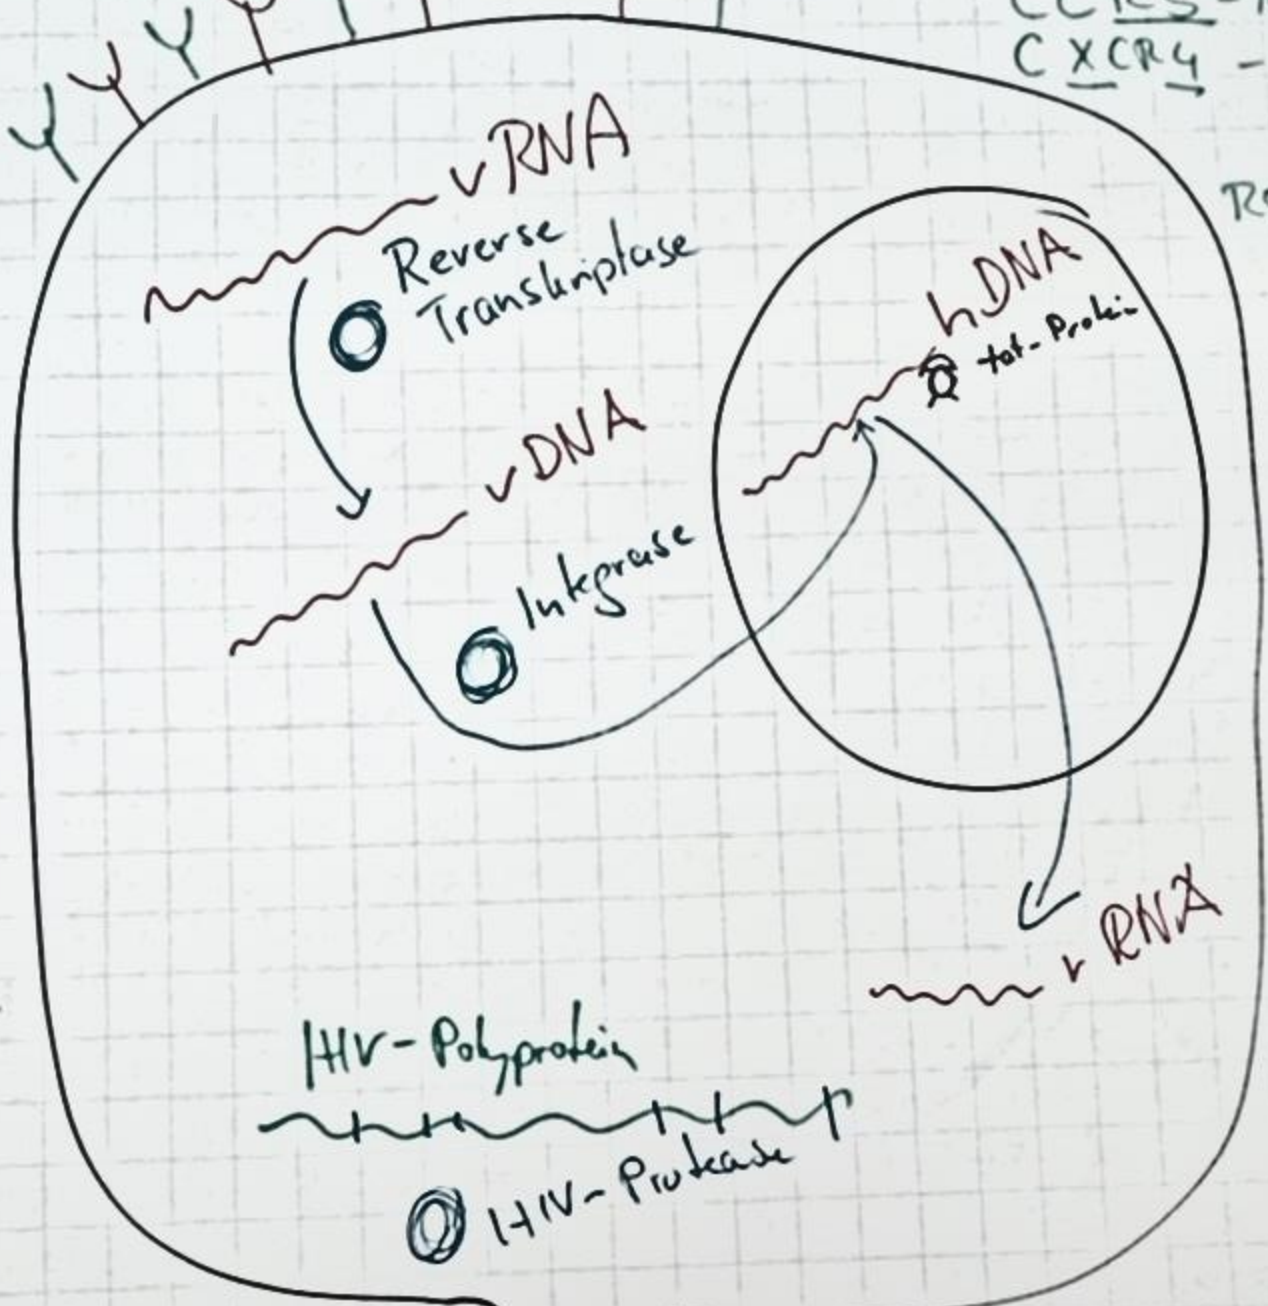 CCR5 -
CXCR4 -
vRNA
Reverse
Transkriptase
hDNA
tat-Protein
vDNA
Integrase
vRNA
HIV-Polyprotein
HIV-Protease